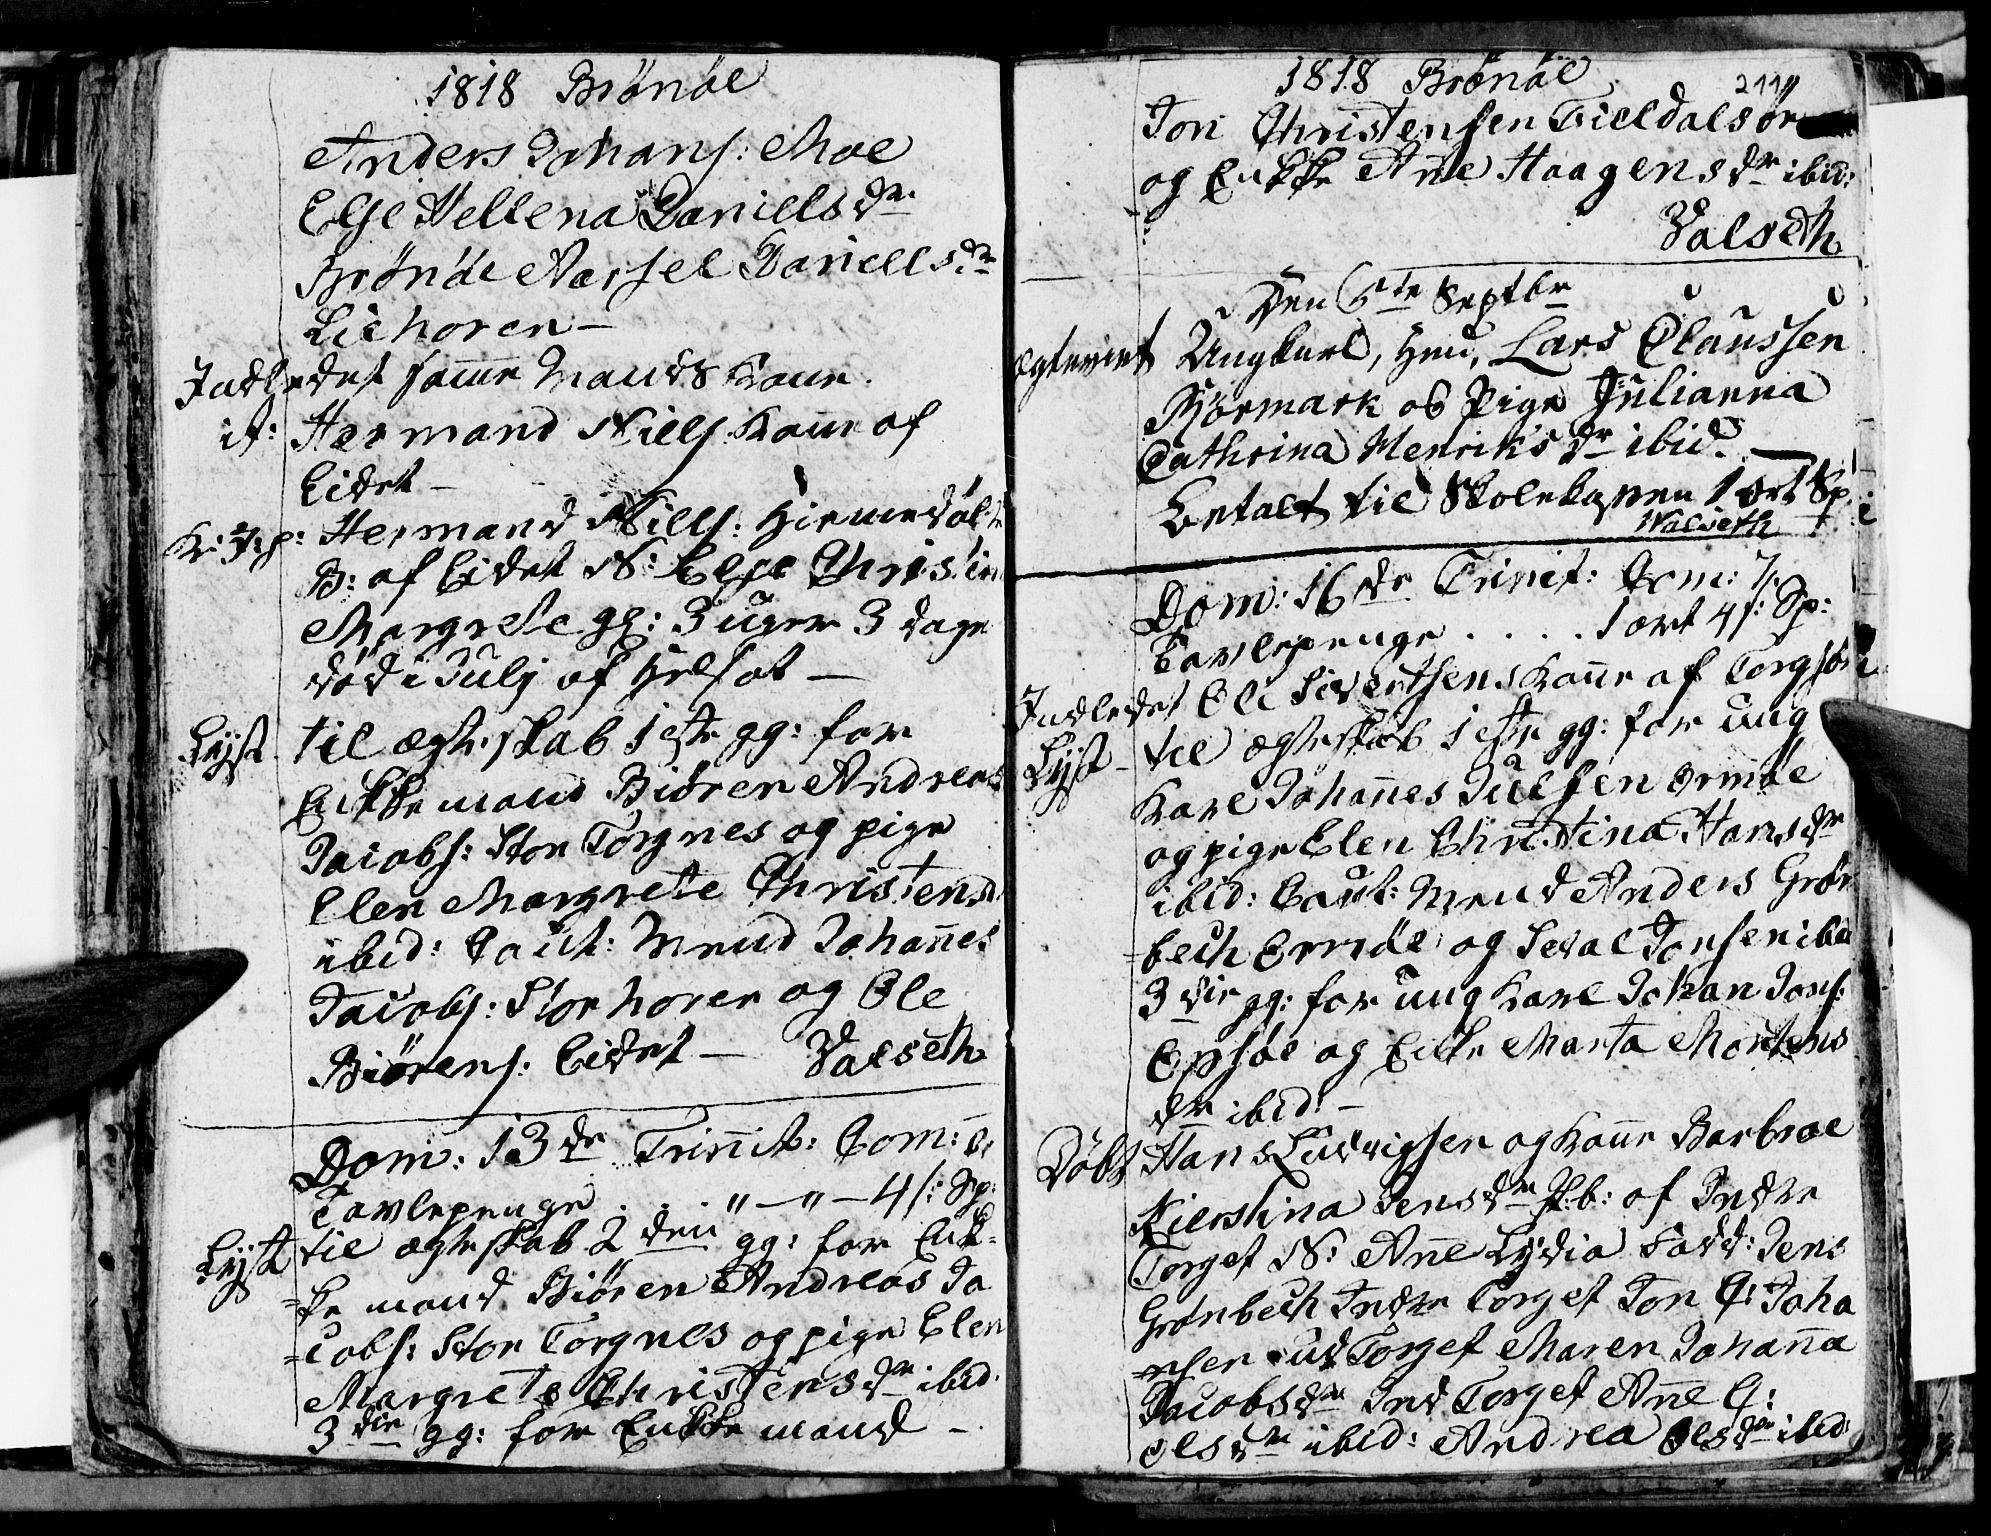 1818 Brönöe
Anders Johans: Moe
Else Hellena Daniels dr
Brönöe Aarsel Daniells dr
Liehoren –
Indledet samme Mands Kone
it: Hermand Niels: Kone af
Eidet –
Hermand Niels:
B: af Eidet N: Else Christin
Margrete gl: 3 uger 3 dage
död i Julij af Helsot –
Lyst til ægteskab 1ste gg: for
Enkkemand Biören Andreas
Jacobs: Stor Torgnes og pige
Elen Margrete Christensd
ibid: Caut: Mend Johannes
Jacobs: Storhoren og Ole
Biörens: Eidet – Valseth
Dom: 13de Trinit: Com: 0
Tavlepenge . . . " – " – 4 s: Sp:
Lyst til ægteskab 2den gg: for Enk=
=ke mand Biören Andreas Ja
=cobs: Stor Torgnes og pige Elen
Margrete Christens dr ibid.
3die gg: for Enkkemand –
1818 Brönöe 211
Jon Christensen Fieldalsör
og Enkke Ane Haagens dr ibid:
Valseth
Den 5te Septbr
Ægteviet Ungkarl, Hnr, Lars Claussen
Biörmark og Pige Julianna
Cathrina Henriks dr ibid. –
Betalt til Skolekassen 1 ort Sp
Walseth
Dom: 16de Trinit: Com: 7.
Tavlepenge . . . . 1 ort 4 s: Sp:
Indledet Ole Sivertsens Kone af Torgför
Lyst – til ægteskab 1ste gg: for ung
Karl Johannes Juelsen Ormöe
og pige Elen Christina Hans dr
ibid: Caut: Mend Anders Grön
=bech Ormöe og Seval Jonsen ibid
3die gg: for ung Karl Johan Jons:
og Enke Marta Mortens
dr ibid: –
Döbt Hans Ludvigsen og Kone Barbroe
Kierstina Jens dr P: b: af Indre
Torget N: Ane Lydia Fadd: Jens
Grönbech Indre Torget Jon C: Joha
=nsen ud Torget Maren Johanna
Jacobs dr Ind Torget Ane C:
Ols dr ibid: Andrea Ols dr ibid: